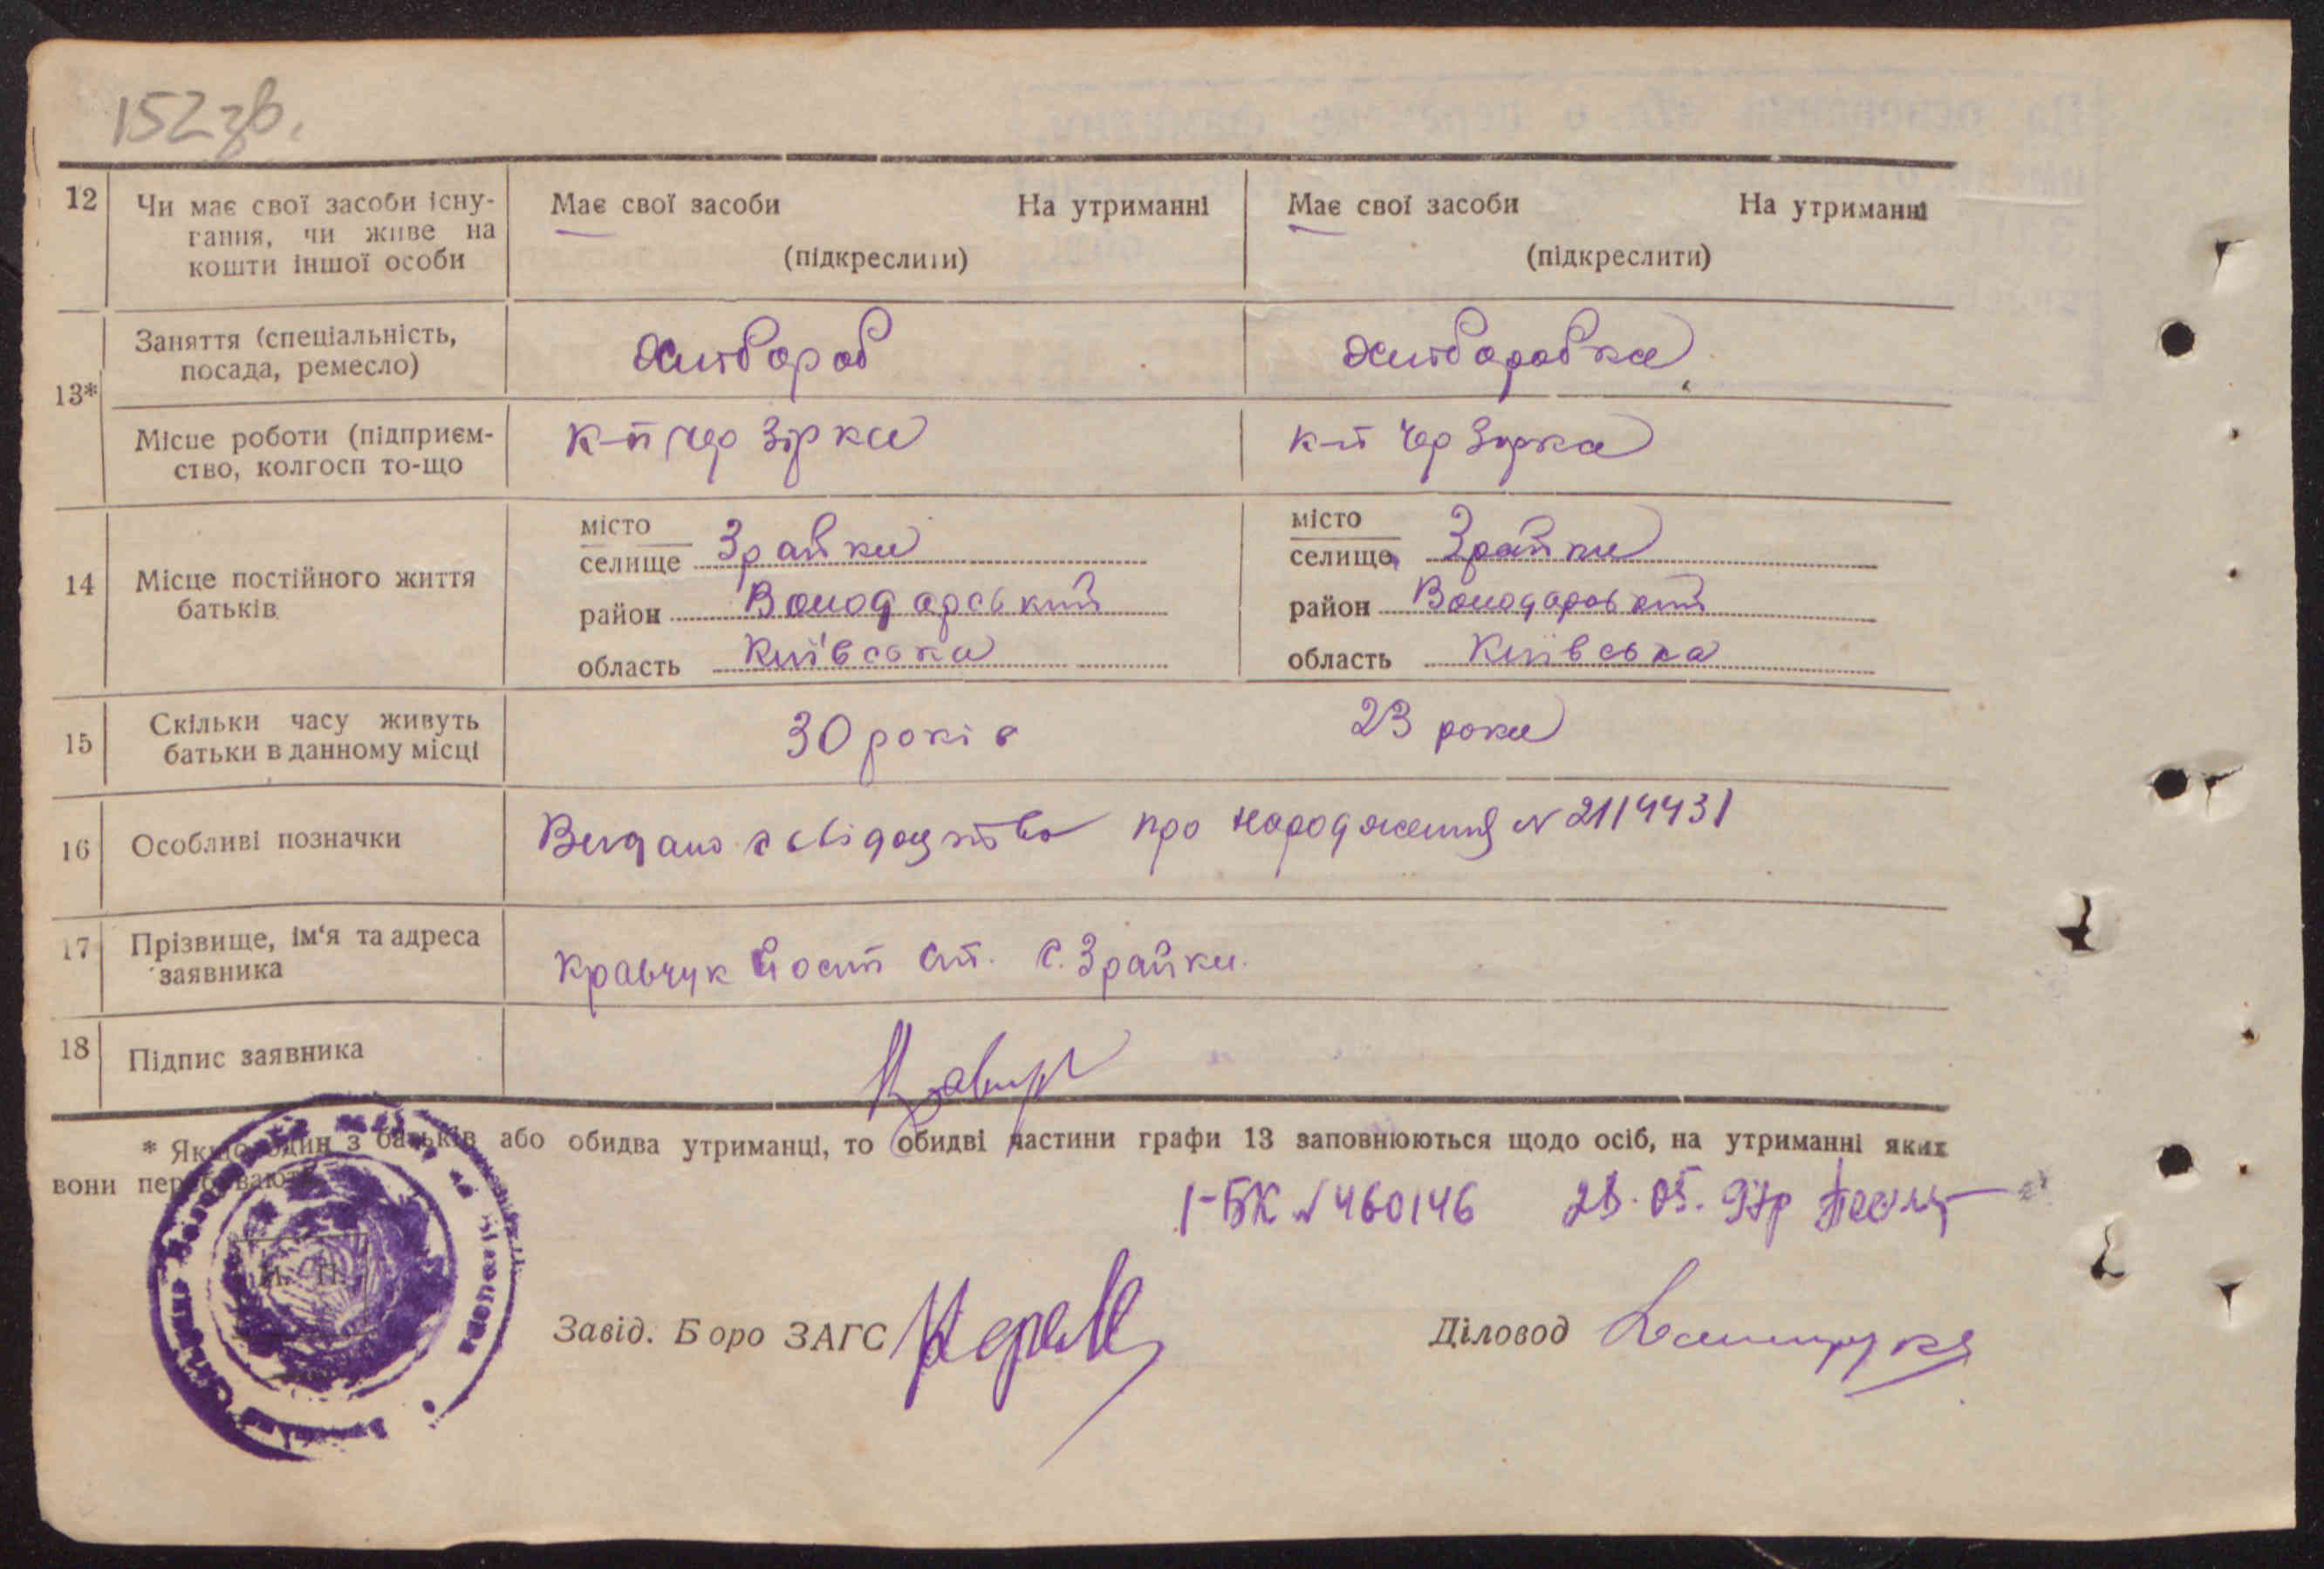 152 зв.
12 Чи має свої засоби існу-
гання, чи живе на
кошти іншої особи
Має свої засоби На утриманні
(підкреслити)
Має свої засоби На утриманні
(підкреслити)
13*
Заняття (спеціальність,
посада, ремесло)
хлібороб
хлібаробка
Місце роботи (підприєм-
ство, колгосп то-що
к-п Чер Зірка
к-п Чер Зірка
14 Місце постійного життя
батьків
місто
селище Зрайки
район Володарський
область Київська
місто
селище Зрайки
район Володарський
область Київська
15 Скільки часу живуть
батьки в данному місці
30 років
23 роки
16 Особливі позначки
Видано свідоцтво про народження N 2114431
17 Прізвище, ім'я та адреса
заявника
Кравчук Йосип Ст. С. Зрайки.
18 Підпис заявника
* Якщо один з батьків або обидва утриманці, то обидві частини графи 13 заповнюються щодо осіб, на утриманні яких
вони перебувають
1-БК N 460146 28.05.97р
М. П.
Завід. Бюро ЗАГС
Діловод